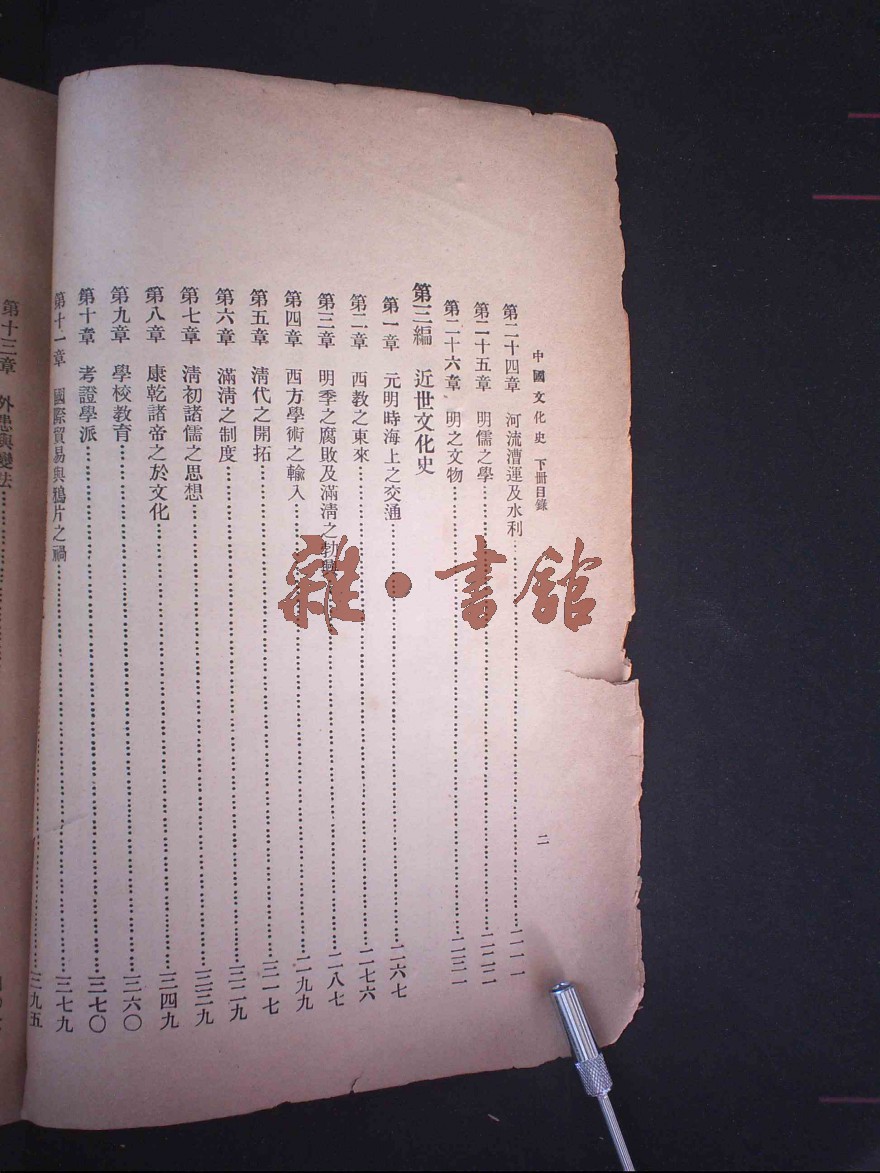 中國文化史 下冊目錄
二
第二十四章 河流漕運及水利……二一一
第二十五章 明儒之學……二二二
第二十六章 明之文物……二三一
第三編 近世文化史
第一章 元明時海上之交通……二六七
第二章 西教之東來……二七六
第三章 明季之腐敗及滿清之勃興……二八七
第四章 西方學術之輸入……二九九
第五章 清代之開拓……三一七
第六章 滿清之制度……三二九
第七章 清初諸儒之思想……三三九
第八章 康乾諸帝之於文化……三四九
第九章 學校教育……三六〇
第十章 考證學派……三七〇
第十一章 國際貿易與鴉片之禍……三七九
……三九五
第十三章 外患與變法……
雜·書館